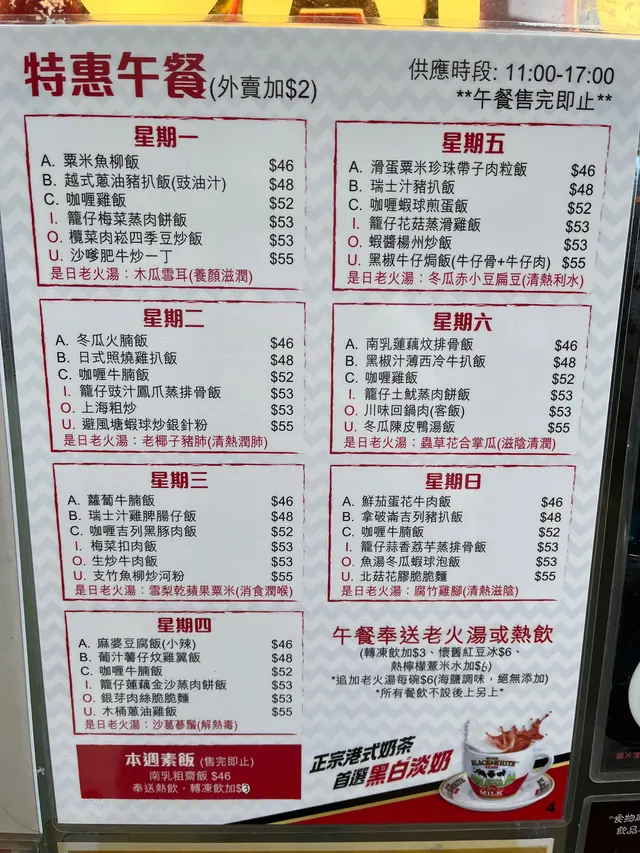 特惠午餐(外賣加$2)
供應時段: 11:00-17:00
**午餐售完即止**
星期一
A. 粟米魚柳飯 $46
B. 越式蔥油豬扒飯(豉油汁) $48
C. 咖喱雞飯 $52
I. 籠仔梅菜蒸肉餅飯 $53
O. 欖菜肉崧四季豆炒飯 $53
U. 沙嗲肥牛炒一丁 $55
是日老火湯：木瓜雪耳(養顏滋潤)
星期二
A. 冬瓜火腩飯 $46
B. 日式照燒雞扒飯 $48
C. 咖喱牛腩飯 $52
I. 籠仔豉汁鳳爪蒸排骨飯 $53
O. 上海粗炒 $53
U. 避風塘蝦球炒銀針粉 $55
是日老火湯：老椰子豬肺(清熱潤肺)
星期三
A. 蘿蔔牛腩飯 $46
B. 瑞士汁雞脾腸仔飯 $48
C. 咖喱吉列黑豚肉飯 $52
I. 梅菜扣肉飯 $53
O. 生炒牛肉飯 $53
U. 支竹魚柳炒河粉 $55
是日老火湯：雪梨乾蘋果粟米(消食潤喉)
星期四
A. 麻婆豆腐飯(小辣) $46
B. 葡汁薯仔炆雞翼飯 $48
C. 咖喱牛腩飯 $52
I. 籠仔蓮藕金沙蒸肉餅飯 $53
O. 銀芽肉絲脆脆麵 $53
U. 木桶蔥油雞飯 $55
是日老火湯：沙葛蔘鬚(解熱毒)
本週素飯 (售完即止)
南乳粗齋飯 $46
奉送熱飲，轉凍飲加$3
星期五
A. 滑蛋粟米珍珠帶子肉粒飯 $46
B. 瑞士汁豬扒飯 $48
C. 咖喱蝦球煎蛋飯 $52
I. 籠仔花菇蒸滑雞飯 $53
O. 蝦醬楊州炒飯 $53
U. 黑椒牛仔焗飯(牛仔骨+牛仔肉) $55
是日老火湯：冬瓜赤小豆扁豆(清熱利水)
星期六
A. 南乳蓮藕炆排骨飯 $46
B. 黑椒汁薄西冷牛扒飯 $48
C. 咖喱雞飯 $52
I. 籠仔土魷蒸肉餅飯 $53
O. 川味回鍋肉(客飯) $53
U. 冬瓜陳皮鴨湯飯 $55
是日老火湯：蟲草花合掌瓜(滋陰清潤)
星期日
A. 鮮茄蛋花牛肉飯 $46
B. 拿破崙吉列豬扒飯 $48
C. 咖喱牛腩飯 $52
I. 籠仔蒜香荔芋蒸排骨飯 $53
O. 魚湯冬瓜蝦球泡飯 $53
U. 北菇花膠脆脆麵 $55
是日老火湯：腐竹雞腳(清熱滋陰)
午餐奉送老火湯或熱飲
(轉凍飲加$3、懷舊紅豆冰$6、
熱檸檬薏米水加$6)
*追加老火湯每碗$6(海鹽調味，絕無添加)
*所有餐飲不設後上另上*
正宗港式奶茶
首選黑白淡奶
BLACK&WHITE
MILK
4